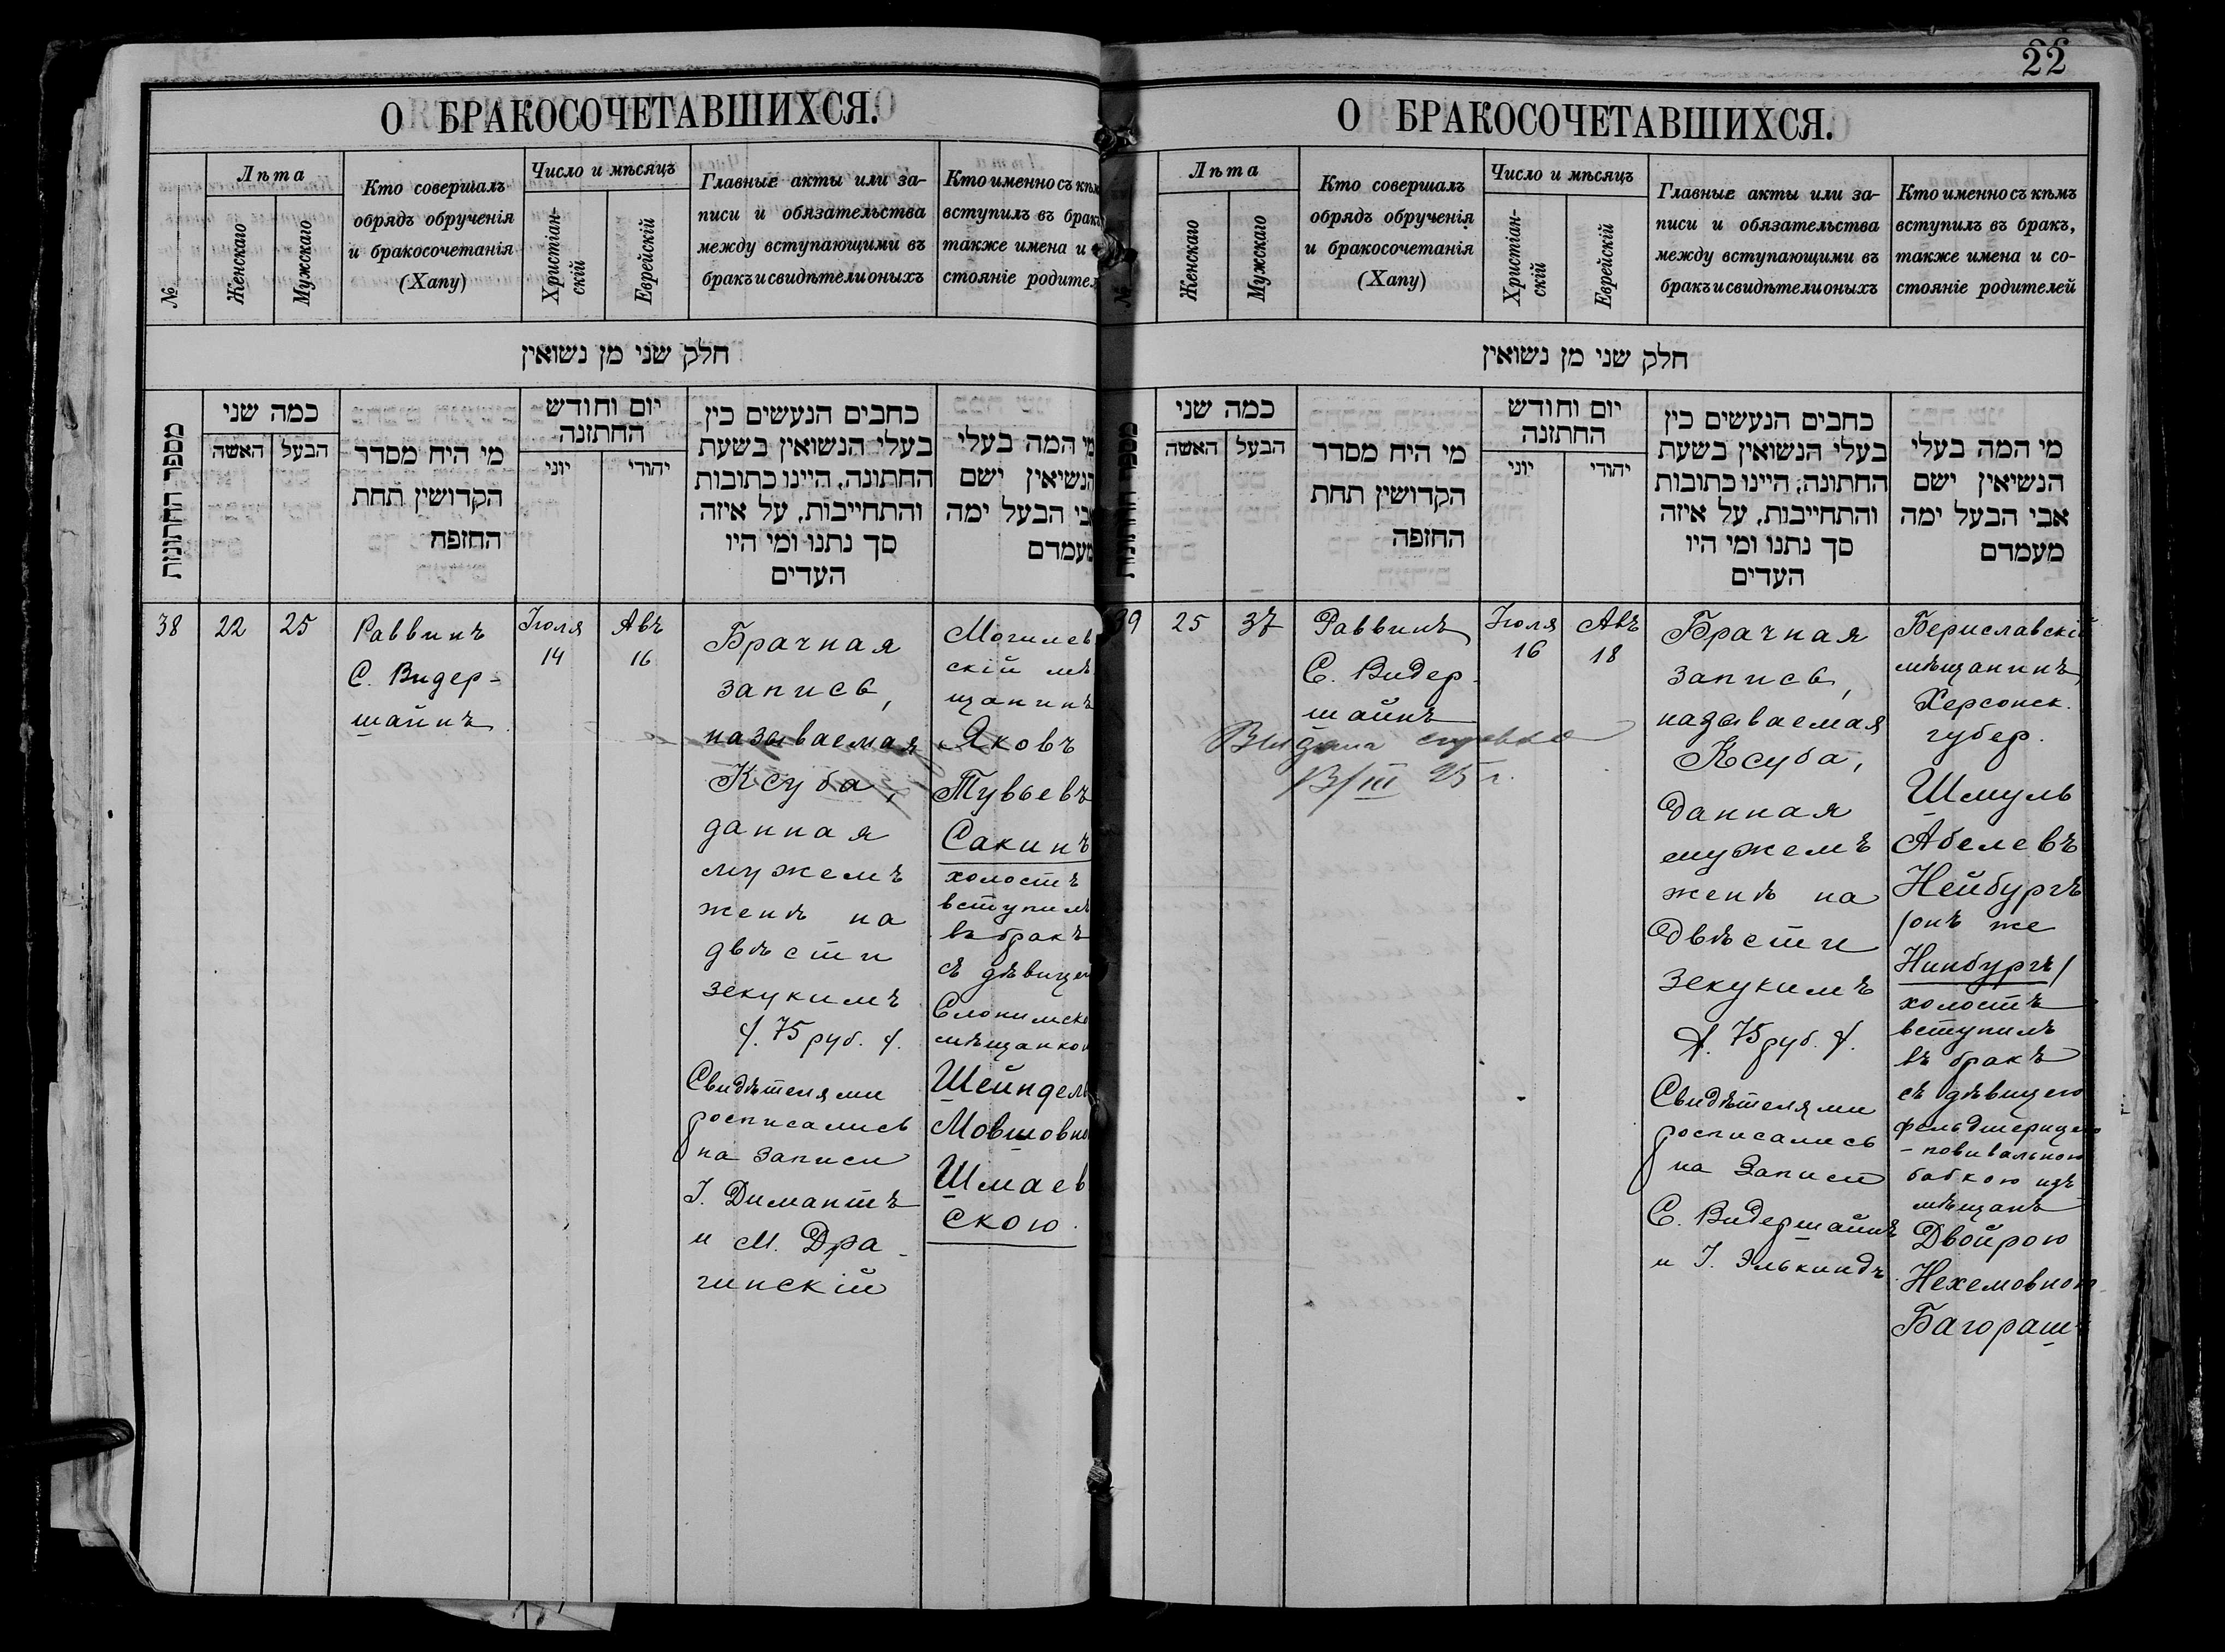 О БРАКОСОЧЕТАВШИХСЯ.
№
Лѣта
Женскаго
Мужскаго
Кто совершалъ
обрядъ обрученія
и бракосочетанія
(Хапу)
Число и мѣсяцъ
Христіан-
скій
Еврейскій
Главные акты или за-
писи и обязательства
между вступающими въ
бракъ и свидѣтели оныхъ
Кто именно съ кѣм
вступилъ въ брак
также имена и
стояніе родител
חלק שני מן נשואין
מספר החתונות
כמה שני
האשה
הבעל
מי היח מסדר
הקדושין תחת
החזפח
יום וחודש
החתזנה
יוני
יהודי
כחבים הנעשים כין
בעלי הנשואין בשעת
החתונה, היינו כתובות
והתחייבות, על איזה
סך נתנו ומי היו
העדים
מי המה בעלי
הנשיאין ישם
אבי הבעל ימה
מעמדם
38
22
25
Раввинъ
С. Видер-
шайнъ
Іюля
14
Авъ
16
Брачная
запись,
называемая
Ксуба,
данная
мужемъ
женѣ на
двѣсти
зекукимъ
/. 75 руб. /.
Свидѣтелями
росписались
на записи
І. Димантъ
и М. Дра-
гинскій
Могилев
скій мѣ-
щанинъ
Яковъ
Тувьевъ
Сакинъ
холостъ
вступилъ
въ бракъ
съ дѣвицею
Слонимско
мѣщанкою
Шейндель
Мовшовно
Шмаев
скою.
22
О БРАКОСОЧЕТАВШИХСЯ.
№
Лѣта
Женскаго
Мужскаго
Кто совершалъ
обрядъ обрученія
и бракосочетанія
(Хапу)
Число и мѣсяцъ
Христіан-
скій
Еврейскій
Главные акты или за-
писи и обязательства
между вступающими въ
бракъ и свидѣтели оныхъ
Кто именно съ кѣмъ
вступилъ въ бракъ,
также имена и со-
стояніе родителей
חלק שני מן נשואין
מספר החתונות
כמה שני
האשה
הבעל
מי היח מסדר
הקדושין תחת
החזפה
יום וחודש
החתזנה
יוני
יהודי
כחבים הנעשים כין
בעלי הנשואין בשעת
החתונה, היינו כתובות
והתחייבות, על איזה
סך נתנו ומי היו
העדים
מי המה בעלי
הנשיאין ישם
אבי הבעל ימה
מעמדם
39
25
37
Раввинъ
С. Видер-
шайнъ
Выдана справка
13/III 25 г.
Іюля
16
Авъ
18
Брачная
запись,
называемая
Ксуба,
данная
мужемъ
женѣ на
двѣсти
зекукимъ
/. 75 руб. /.
Свидѣтелями
росписались
на записи
С. Видершайнъ
и І. Элькиндъ.
Бериславскій
мѣщанинъ,
Херсонск.
губер.
Шмуль
Абелевъ
Нейбургъ
/онъ же
Нинбургъ/
холостъ
вступилъ
въ бракъ
съ дѣвицею
фельдшерицею
-повивальною
бабкою изъ
мѣщанъ
Двойрою
Нехемовною
Багораш